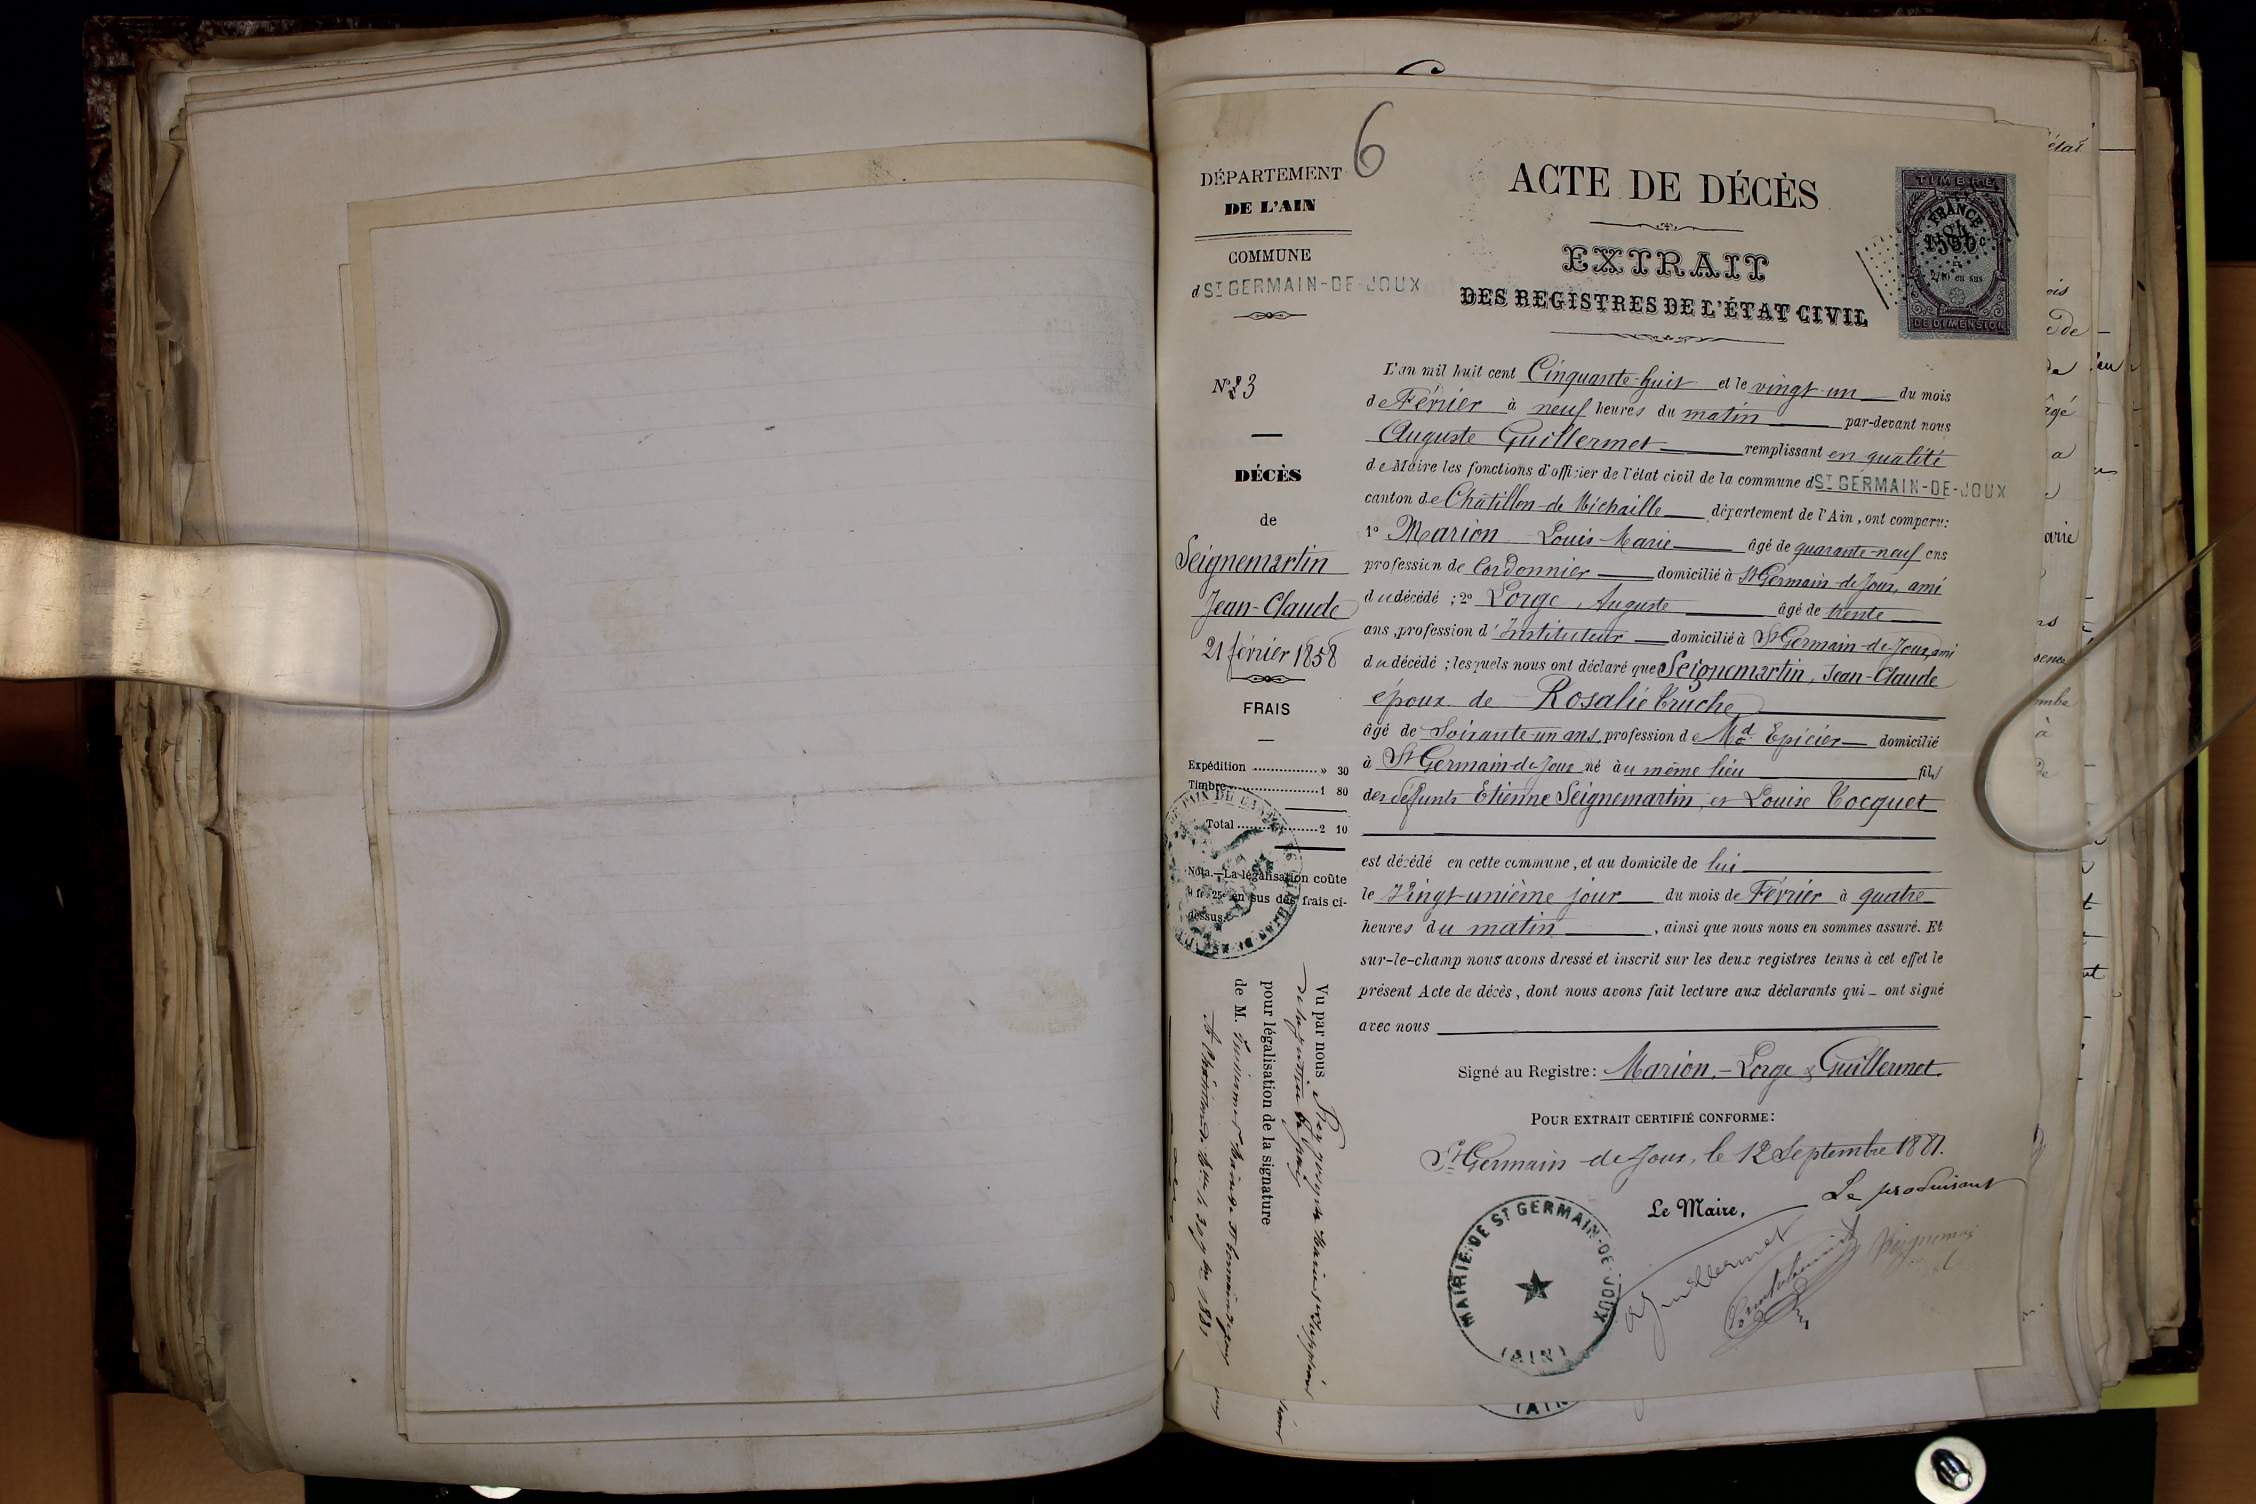 6
DÉPARTEMENT
DE L'AIN
COMMUNE
d ST GERMAIN-DE-JOUX
N° 3
DÉCÈS
de
Seignemartin
Jean-Claude
21 février 1858
FRAIS
Expédition » 30
Timbre 1 80
Total 2 10
Nota.—La légalisation coûte
» fr. 25c en sus des frais ci-
dessus.
Vu par nous
pour légalisation de la signature
de M. Guillermet Maire de St Germain de Joux
ACTE DE DÉCÈS
EXTRAIT
DES REGISTRES DE L'ÉTAT CIVIL
TIMBRE
FRANCE
2/10 en sus
DE DIMENSION
L'an mil huit cent Cinquante-huit et le vingt-un du mois
de Février à neuf heures du matin par-devant nous
Auguste Guillermet remplissant en qualité
de Maire les fonctions d'officier de l'état civil de la commune d ST GERMAIN-DE-JOUX
canton de Châtillon-de-Michaille département de l'Ain, ont comparu:
1° Marion Louis-Marie âgé de quarante-neuf ans
profession de Cordonnier domicilié à St Germain-de-Joux, ami
du décédé ; 2° Lorge Auguste âgé de trente
ans, profession d'Instituteur domicilié à St Germain-de-Joux, ami
du décédé ; lesquels nous ont déclaré que Seignemartin, Jean-Claude
époux de Rosalie Truche
âgé de Soixante-un ans, profession de Md Epicier domicilié
à St Germain-de-Joux né au même lieu fils
des défunts Etienne Seignemartin, et Louise Cocquet
est décédé en cette commune, et au domicile de lui
le Vingt-unième jour du mois de Février à quatre
heures du matin, ainsi que nous nous en sommes assuré. Et
sur-le-champ nous avons dressé et inscrit sur les deux registres tenus à cet effet le
présent Acte de décès, dont nous avons fait lecture aux déclarants qui ont signé
avec nous
Signé au Registre: Marion, - Lorge & Guillermet.
POUR EXTRAIT CERTIFIÉ CONFORME:
St Germain-de-Joux, le 12 Septembre 1881.
Le Maire,
Le produisant
aguillermet
MAIRIE DE ST GERMAIN-DE-JOUX
(AIN)